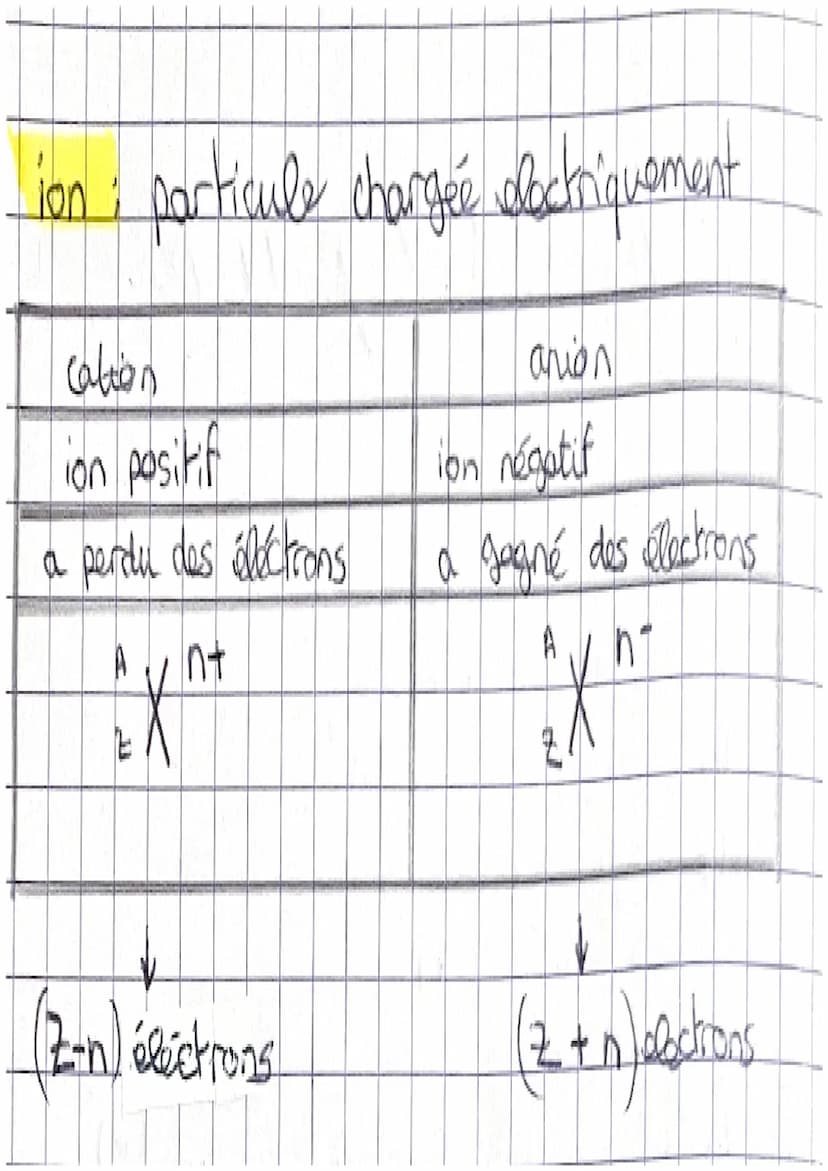 ion : particule chargée electriquement
cation anion
ion positif ion négatif
a perdu des éléctrons a gagné des électrons
A X n+ A X n-
Z Z
(Z-n) éléctrons (Z+n) electrons